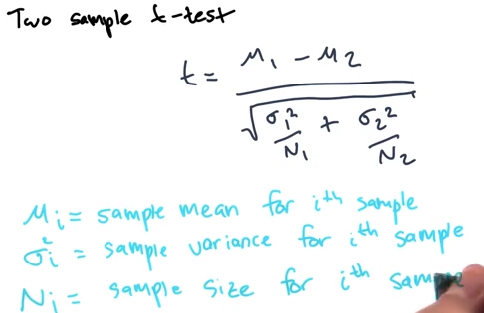 Two sample t-test
t = μ₁ - μ₂
√ σ₁² + σ₂²
N₁ N₂
μi = sample mean for ith sample
σi² = sample variance for ith sample
Ni = sample size for ith